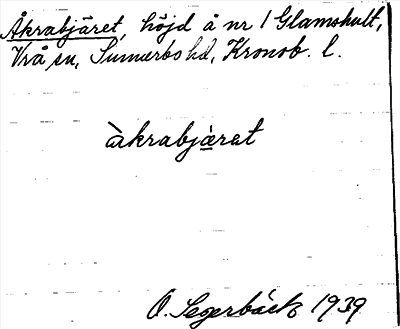 Åkrabjäret, höjd å nr 1 Glamshult,
Vrå sn, Sunnerbo hd, Kronob. l.
àkrabjä̀rat
O. Segerbäck 1939